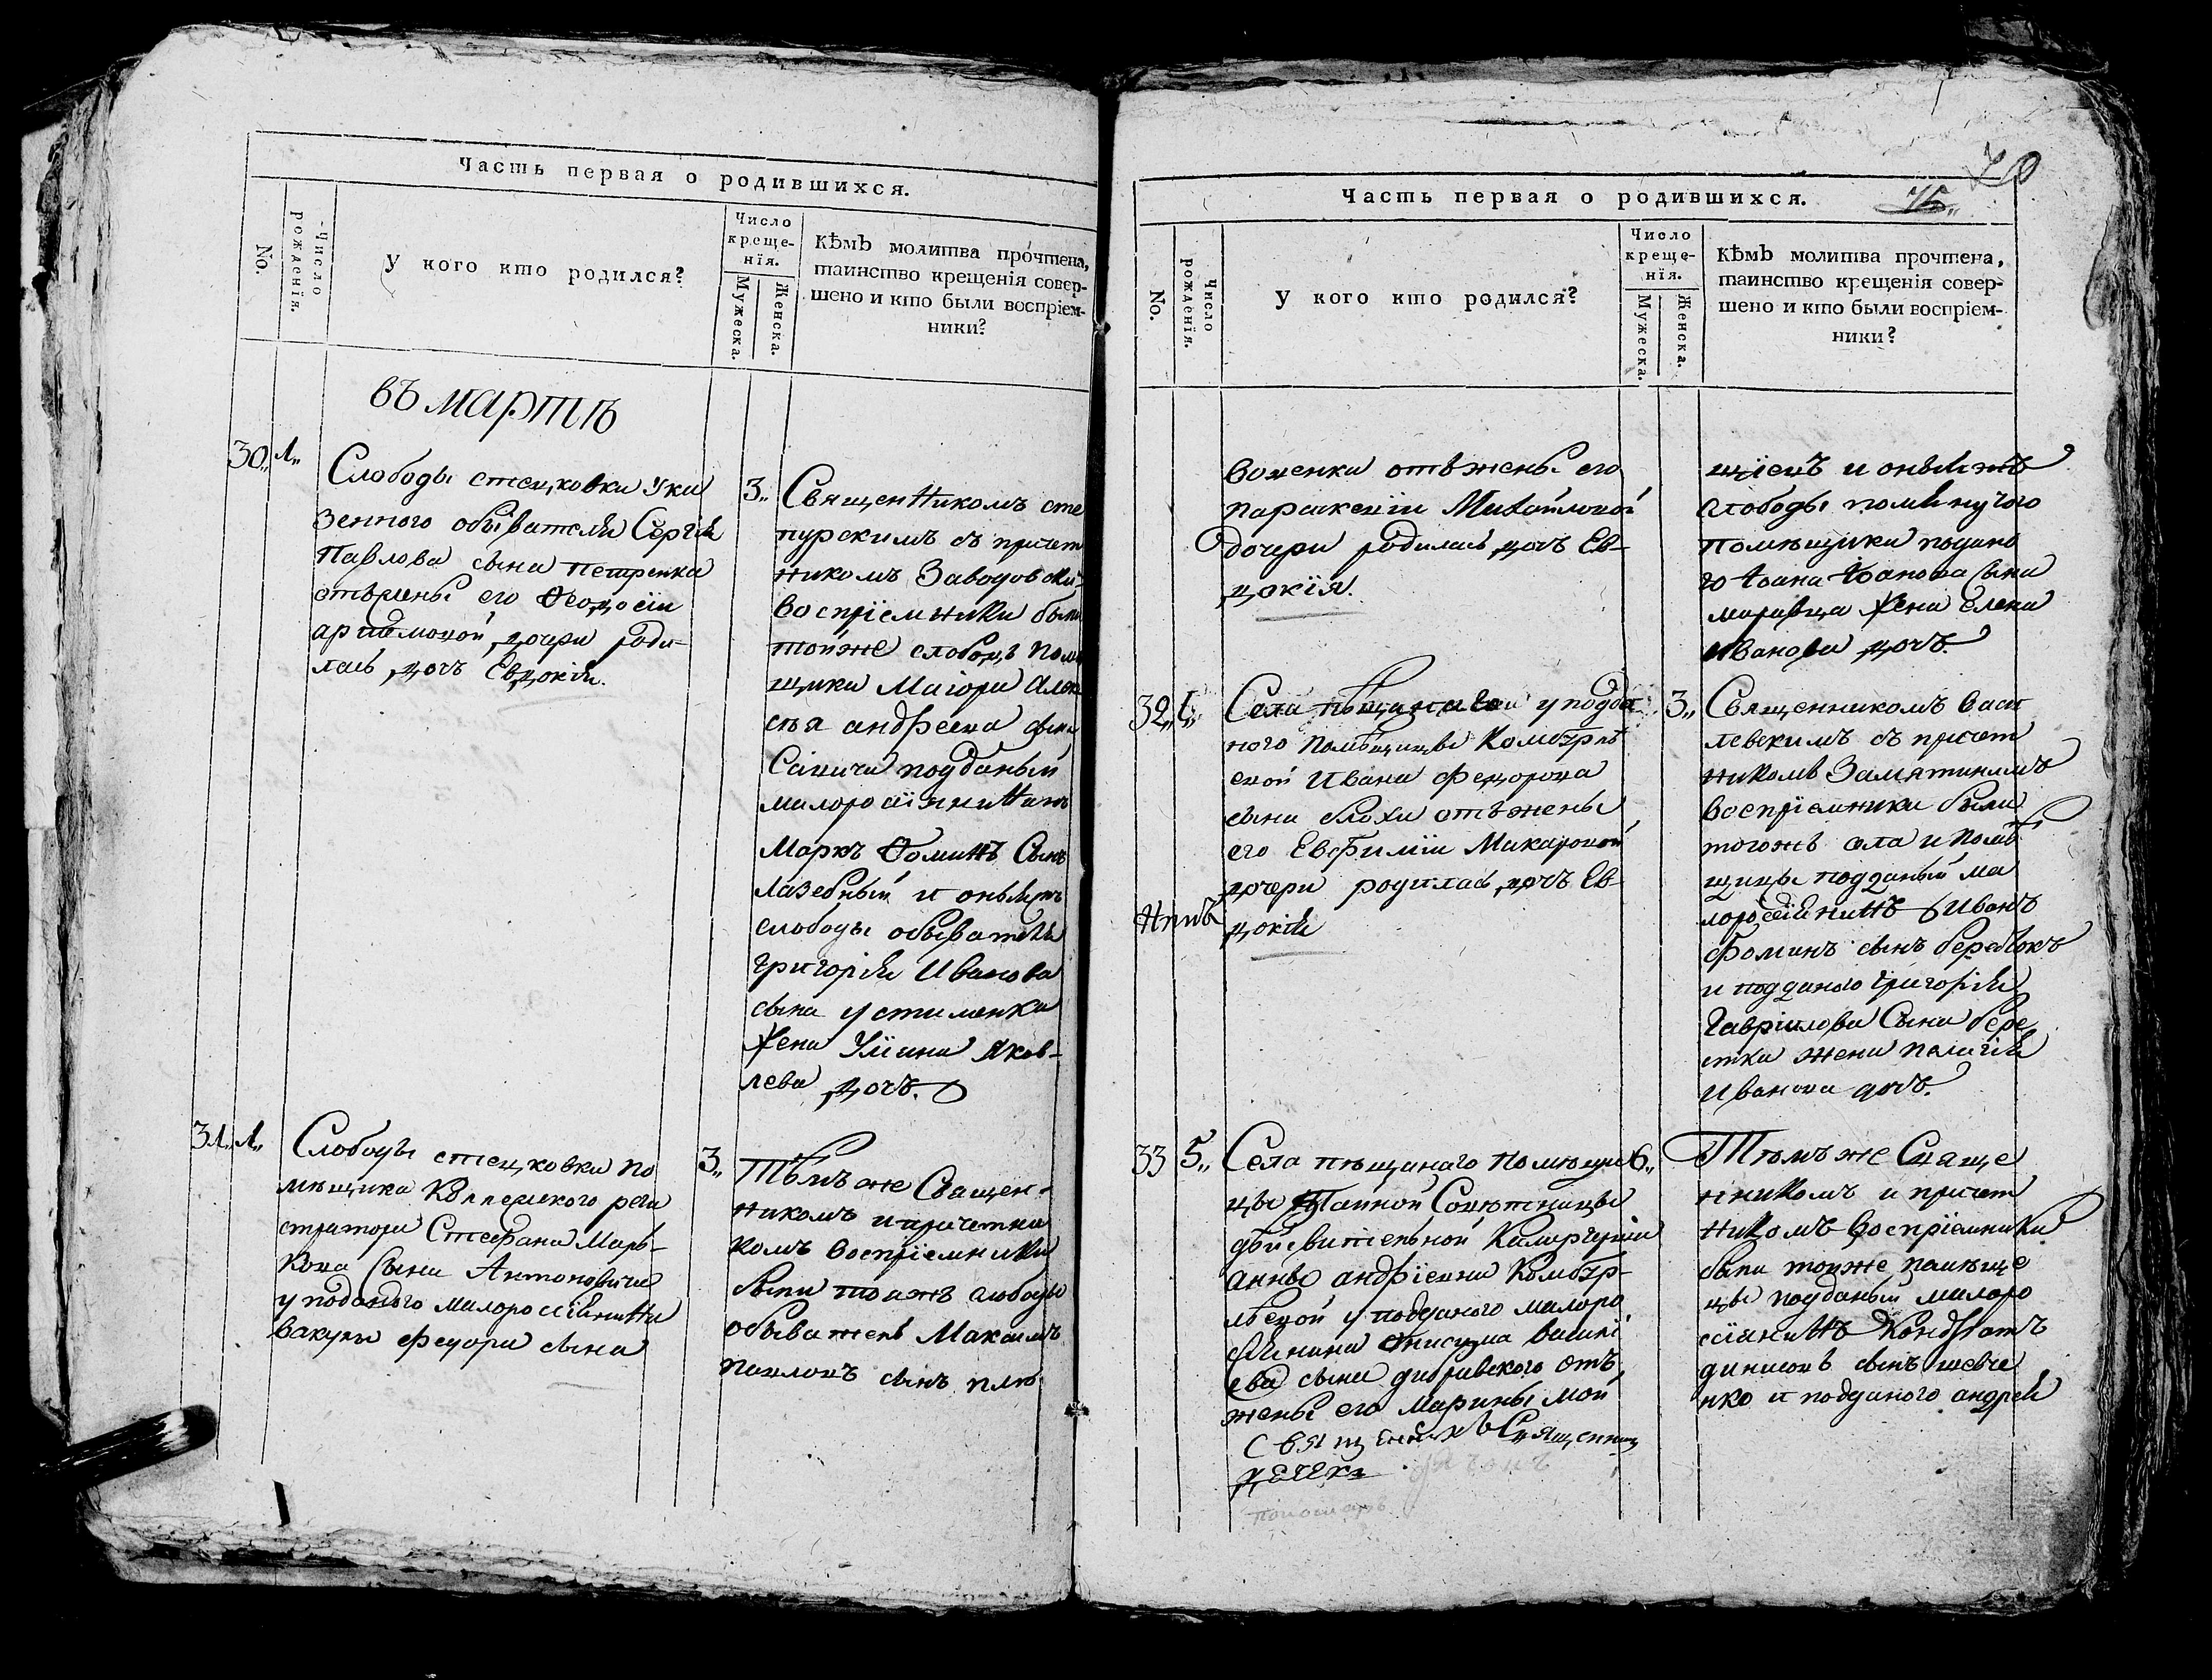 Часть первая о родившихся.
No.
Число рожденія.
у кого кто родился?
Число
креще-
нія.
Мужеска.
Женска.
кѣмъ молитва прочтена,
таинство крещенія совер-
шено и кто были воспріем-
ники?
въ мартѣ
30„ 1„
Слободы стецковки у ка
зенного обывателя Сергія
Павлова сына Петренка
отъ жены его Ѳеодосіи
артемовой дочери роди-
лась дочъ Евдокія.
3„
Священникомъ сте
пурскимъ съ причет
никомъ Заводовски
воспріемники были
тойже слободы поме
щика Маіора Алек
сѣя андреева сына
Савича подданый
малоросіянинъ
Маркъ Ѳоминъ Сынъ
Лазебный и оныяжъ
слободы обывателя
Григорія Иванова
сына устименка
жена Уліяна Яков-
лева дочъ.
31„ 1„
Слободы стецковки по
мѣщика Коллежского реги
стратора Стефана Марь-
кова Сына Антоновича
у поданого малоросіянина
вакулы федора сына
3„
Тѣмъ же Священ-
никомъ и причетни
комъ воспріемники
были тояжъ слободы
обыватель Максимъ
павловъ сынъ плю
Часть первая о родившихся.
76„
70
No.
Число рожденія.
у кого кто родился?
Число
креще-
нія.
Мужеска.
Женска.
кѣмъ молитва прочтена,
таинство крещенія совер-
шено и кто были воспріем-
ники?
воненка отъ жены его
параскевіи Михайловой
дочери родилась дочъ Ев-
докія.
щіецъ и оныяжъ
слободы помянутого
помѣщика подано
го Іоана Іоанова сына
маравца жена Елена
Иванова дочъ
32„
Села пѣщанаго у подда
ного помѣщицы Комбурлѣ
евой Ивана Федорова
сына блохи отъ жены
его Евфиміи Макаровой
дочери родилась дочъ Ев-
докія
3„
Священникомъ Васи
левскимъ съ причет
никомъ Замятинымъ
воспріемники были
тогожъ села и помѣ
щицы подданый ма
лоросіянинъ Иванъ
Фоминъ сынъ берестокъ
и подданого Григорія
Гавріилова Сына бере
стка жена пелагія
Иванова дочъ.
33 5„
Села пѣщанаго помѣщи
цы Тайной Совѣтницы
дѣйствительной Камергерши
анны андрѣевни Комбур-
лѣевой у подданого малоро
сіянина Онисима Васил
ева сына дибривского отъ
жены его Марины Мой
священикъ Священник
дечека
дячокъ
пономарь
6„
Тѣмъ же Свяще
нникомъ и причет
никомъ воспріемники
были тойже памѣще
цы подданый малоро
сіянинъ Кондратъ
динисовъ сынъ шевче
нко и подданого андрей